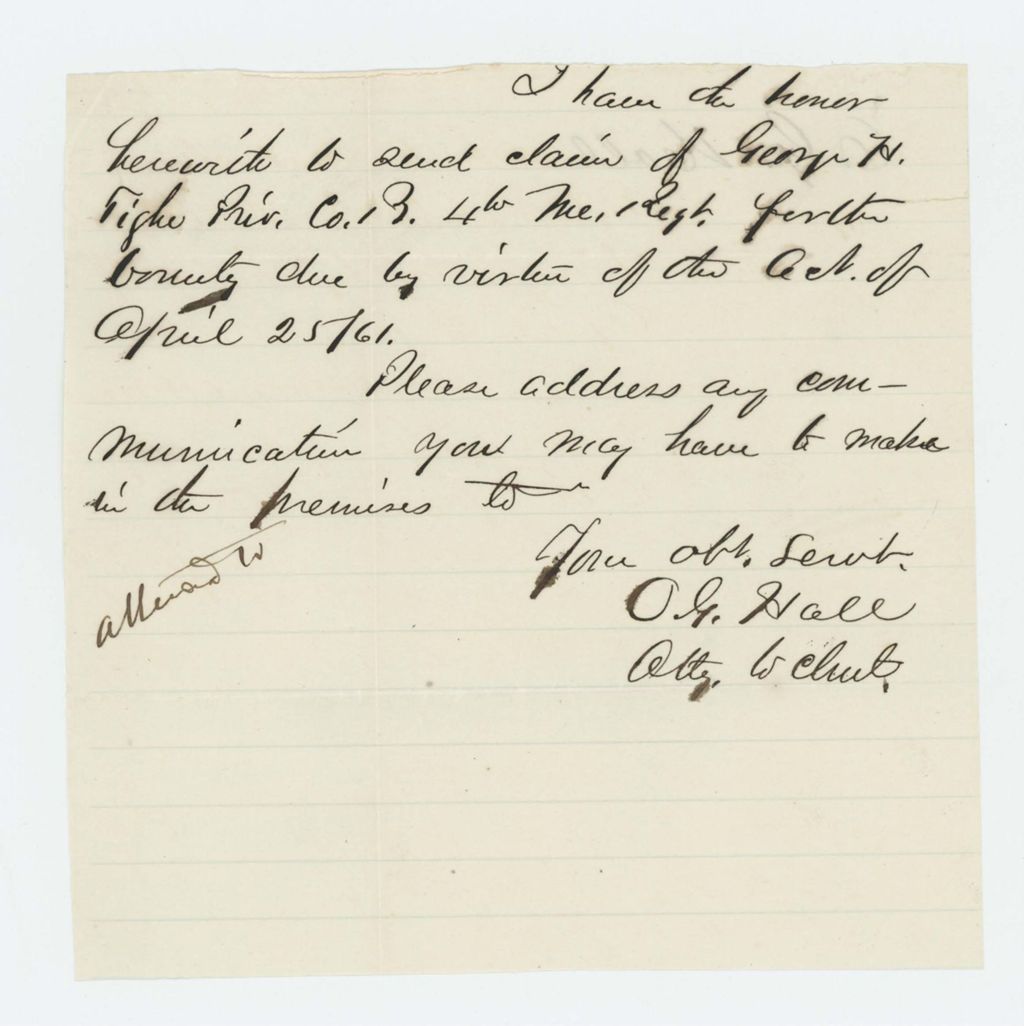 I have the honor
herewith to send claim of George H.
Tighe Priv. Co. B. 4th Me. Regt. for the
bounty due by virtue of the Act. of
April 25/61.
Please address any com-
munication you may have to make
in the premises to
Your obt. Servt.
O.G. Hall
Atty. to clmt.
attend to